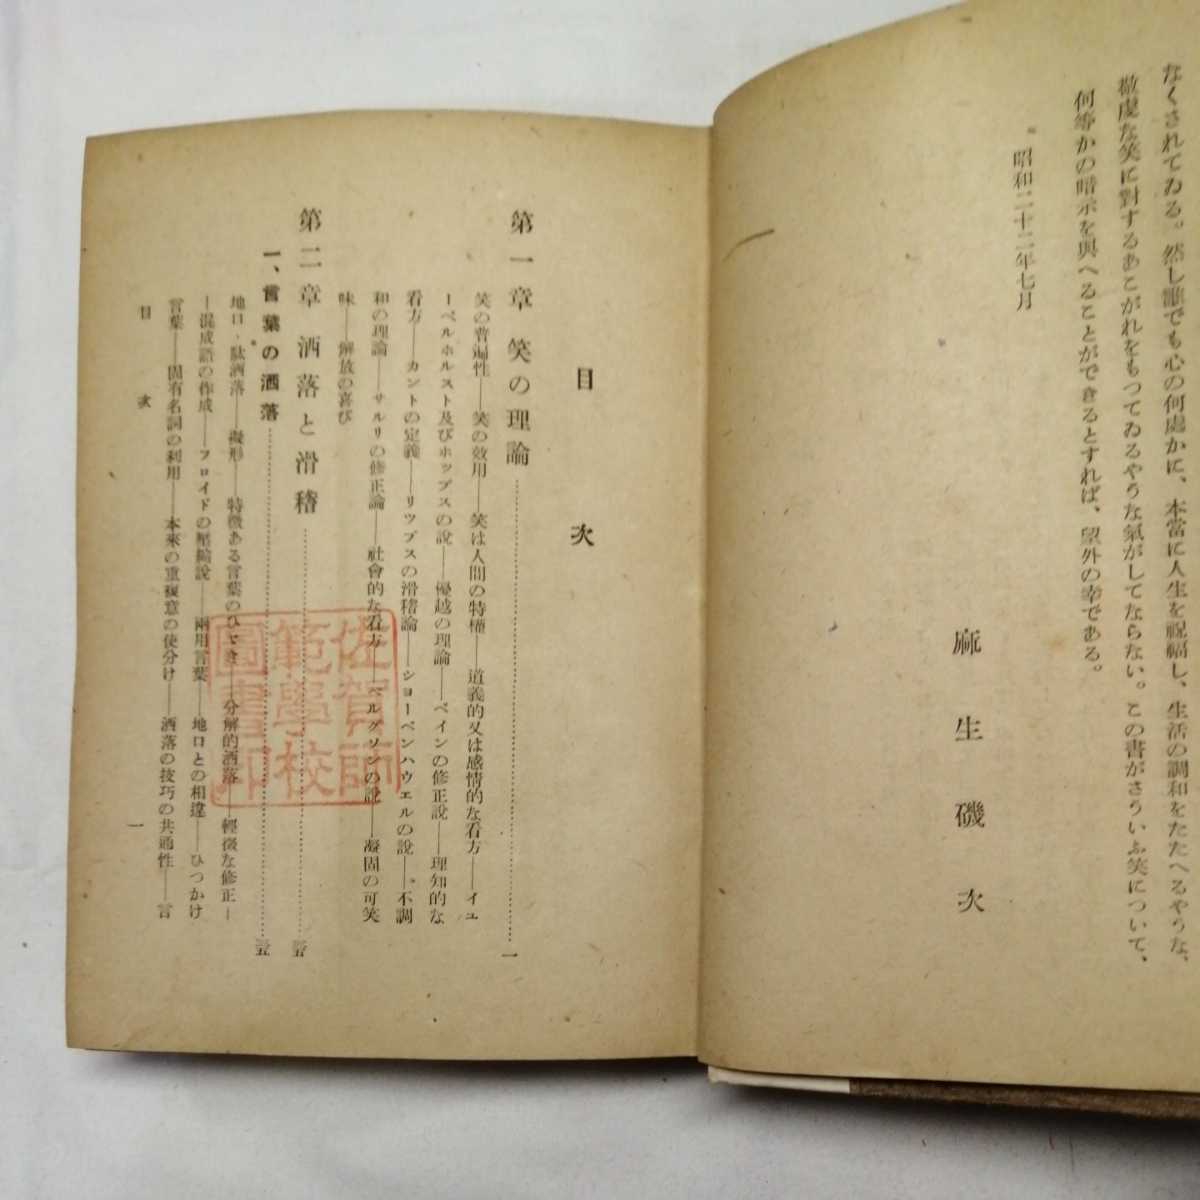 なくされてゐる。然し誰でも心の何處かに、本當に人生を祝福し、生活の調和をたたへるやうな、
敬虔な笑に對するあこがれをもつてゐるやうな氣がしてならない。この書がさういふ笑について、
何等かの暗示を與へることができるとすれば、望外の幸である。
昭和二十二年七月
麻生磯次
目次
第一章 笑の理論……一
笑の普遍性――笑の效用――笑は人間の特權――道義的又は感情的な看方――イュ
ーベルホルスト及びホッブスの說――優越の理論――ベインの修正說――理知的な
看方――カントの定義――リツプスの滑稽論――ショーペンハウエルの說――不調
和の理論――サルリの修正論――社會的な看方――ベルグソンの說――凝固の可笑
味――解放の喜び
第二章 洒落と滑稽……三五
一、言葉の洒落……三五
地口・駄洒落――擬形――特徵ある言葉のひびき――分解的洒落――輕微な修正―
―混成語の作成――フロイドの壓縮說――兩用言葉――地口との相違――ひつかけ
言葉――固有名詞の利用――本來の重複意の使分け――洒落の技巧の共通性――言
目次
一
佐賀師
範學校
圖書印